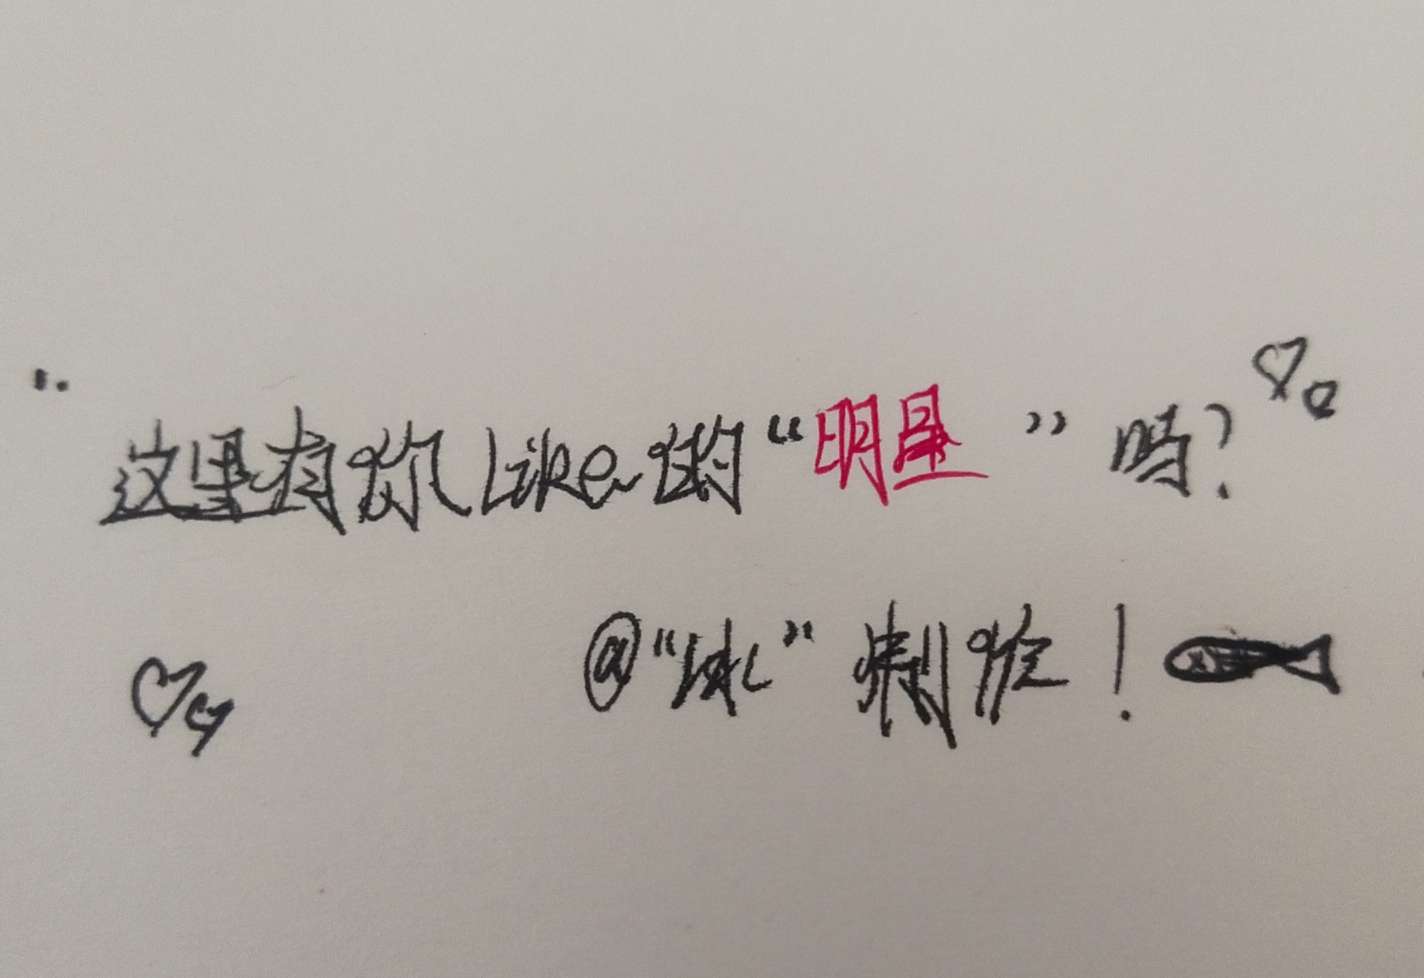 这里有你Like的“明星”吗?
@“冰”制作!